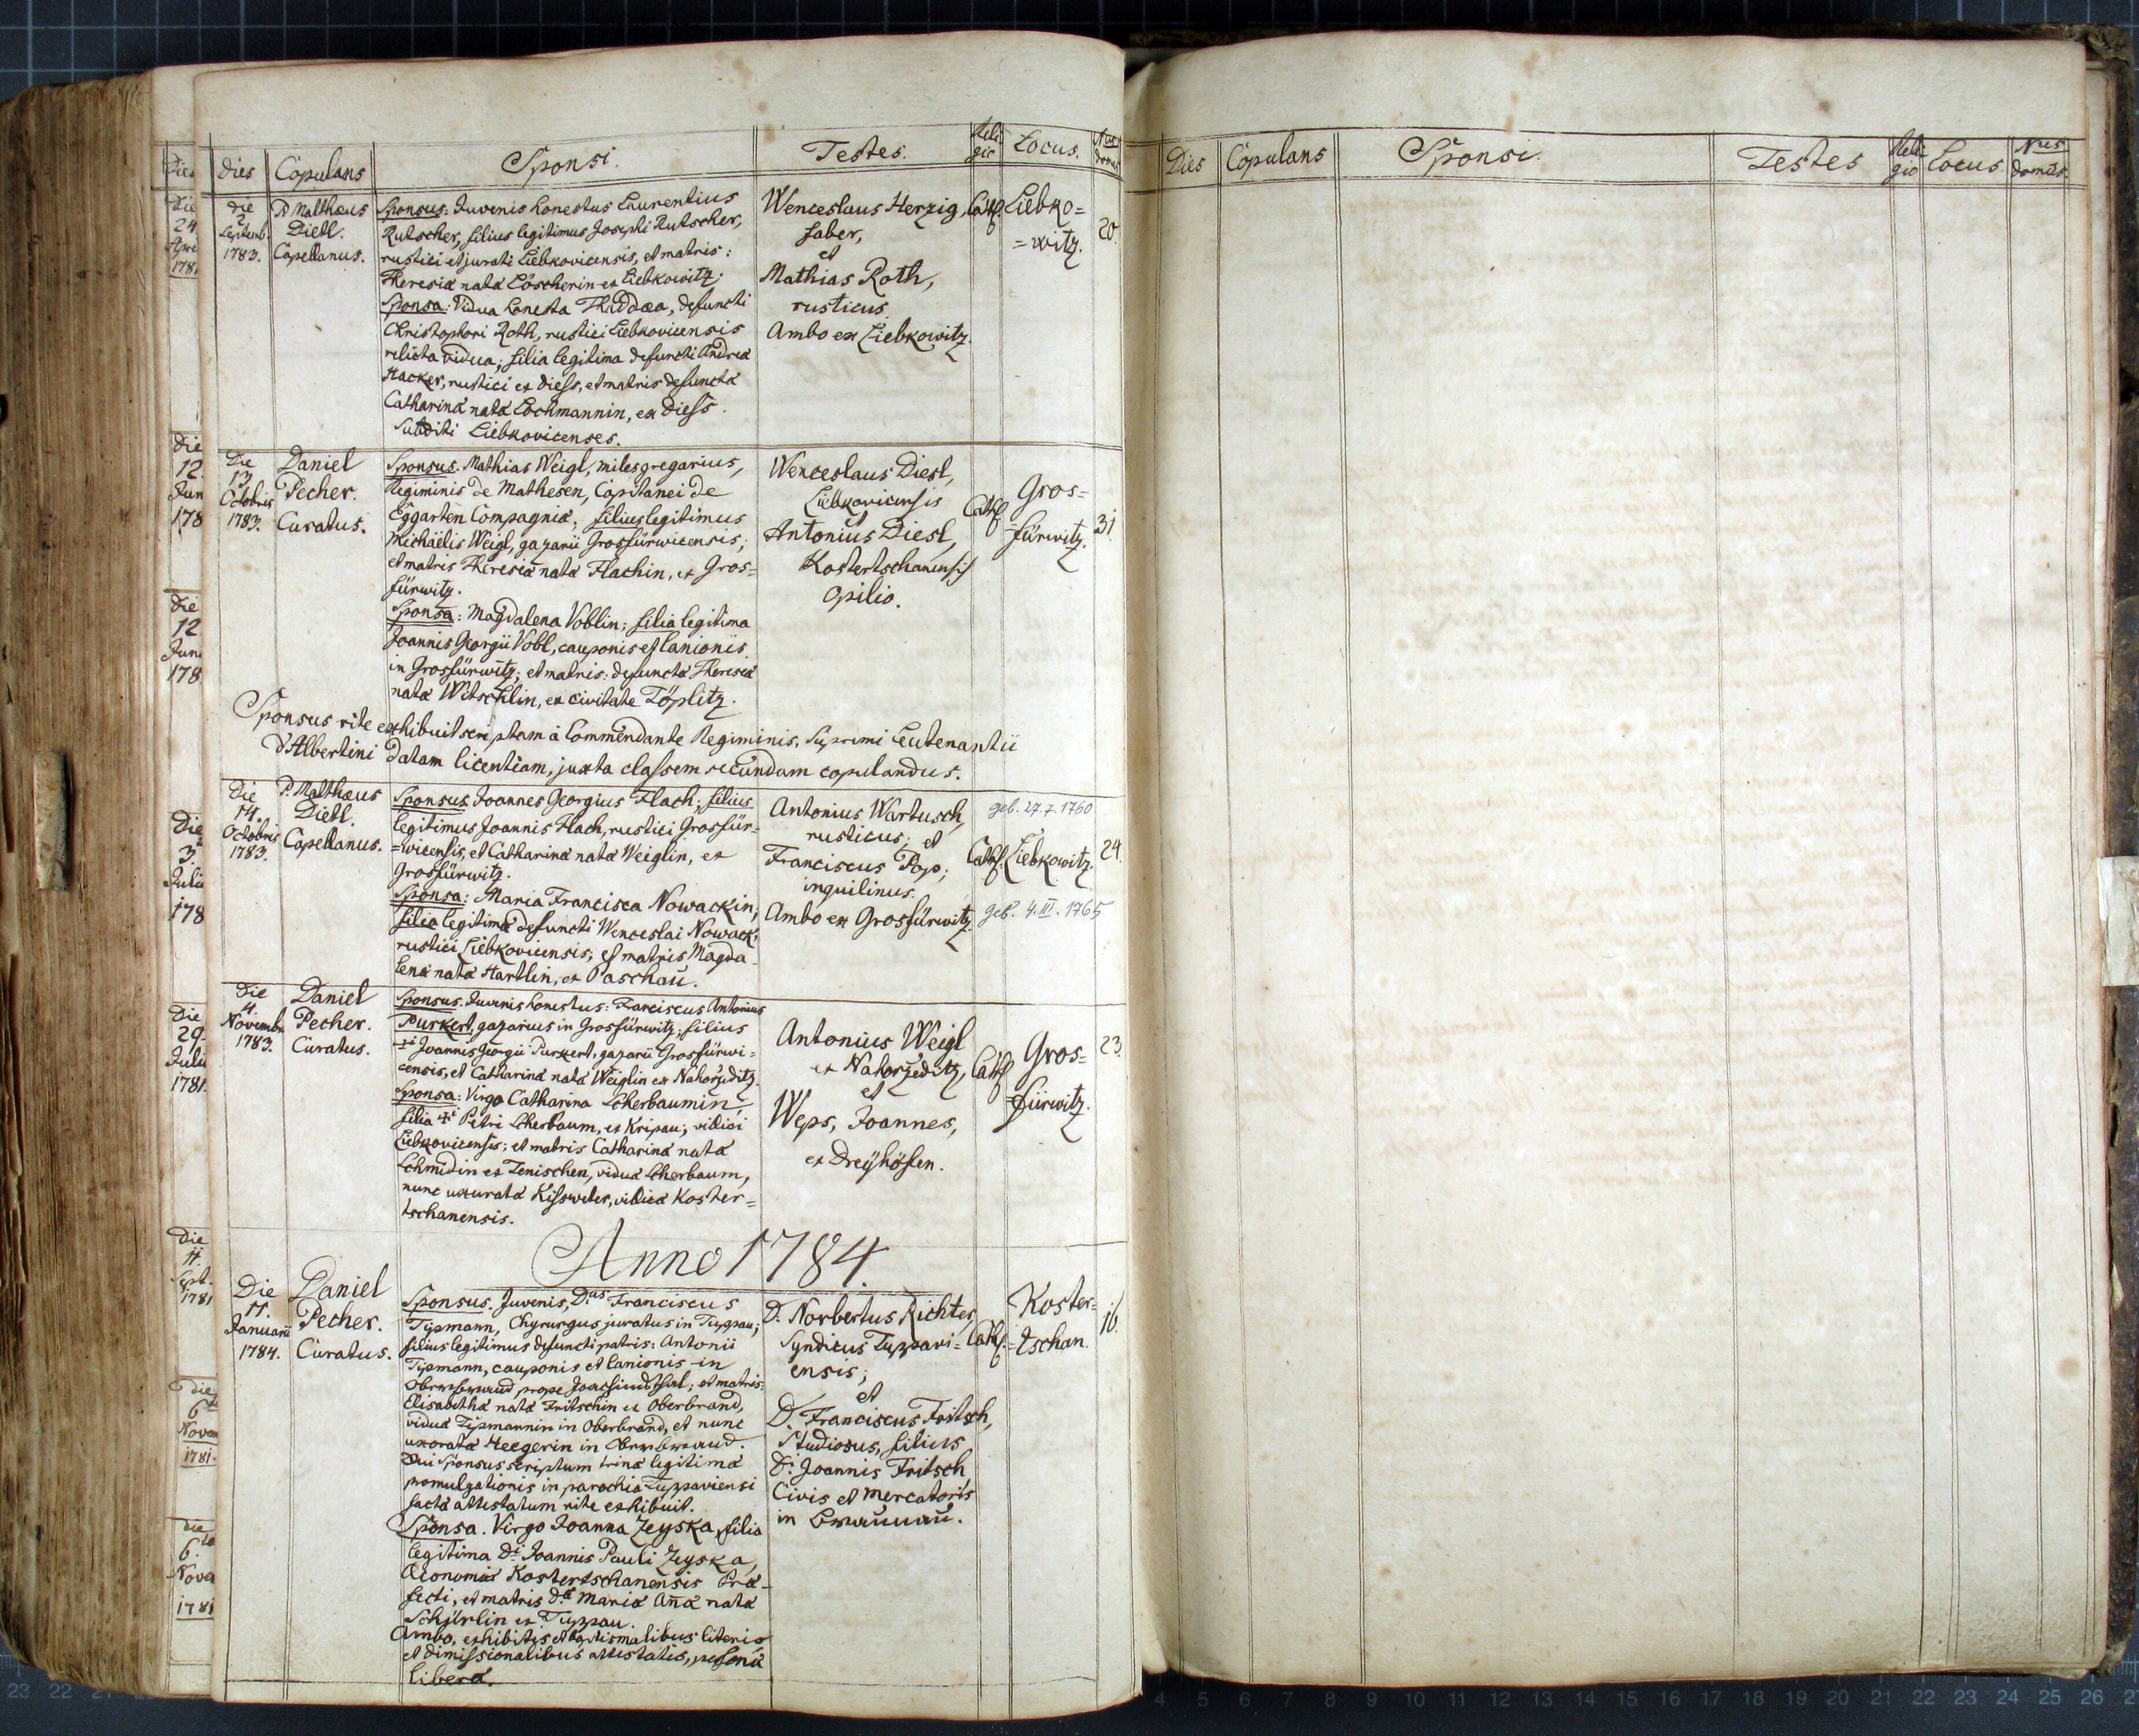 Dies Copulans Sponsi. Testes. Reli gio Locus. Nus domus
Die 2. Septemb. 1783.
P. Mathæus
Dietl.
Capellanus.
Sponsus: Juvenis honestus Laurentius
Rutscher, filius legitimus Josephi Rutscher,
rustici et jurati Liebkovicensis, et matris:
Theresiæ natæ Löscherin ex Liebkowitz;
Sponsa: Vidua honesta Thaddæa, defuncti
Christophori Roth, rustici Liebkovicensis
relicta vidua; filia legitima defuncti Andreæ
Hacker, rustici ex Diess, et matris defunctæ
Catharinæ natæ Lochmannin, ex Diess.
Subditi Liebkovicenses.
Wenceslaus Herzig,
faber,
et
Mathias Roth,
rusticus.
Ambo ex Liebkowitz.
Cath.
Liebko=
=witz.
20.
Die
13.
Octobris
1783.
Daniel
Pecher.
Curatus.
Sponsus. Mathias Weigl, miles gregarius,
Regiminis de Mathesen, Capitanei de
Eggarten Compagniæ, filius legitimus
Michaëlis Weigl, gazarii Grosfürwicensis;
et matris Theresiæ natæ Flachin, ex Gros=
fürwitz.
Sponsa: Magdalena Voblin; filia legitima
Joannis Georgii Vobl, cauponis et lanionis
in Grosfürwitz; et matris: defunctæ Theresiæ
natæ Witschlin, ex civitate Töplitz.
Wenceslaus Diesl,
Liebkovicensis
et
Antonius Diesl,
Kostertschanensis
Opilio.
Cath.
Gros=
=fürwitz.
31.
Sponsus rite exhibuit scriptam à Commendante Regiminis, Supremi Leutenantii
d'Albertini datam licentiam, juxta classem secundam copulandus.
Die
14.
Octobris
1783.
P. Mathæus
Dietl.
Capellanus.
Sponsus Joannes Georgius Flach; filius
legitimus Joannis Flach, rustici Grosfür-
=wicensis, et Catharinæ natæ Weiglin, ex
Grosfürwitz.
Sponsa: Maria Francisca Nowackin;
filia legitima defuncti Wenceslai Nowack,
rustici Liebkovicensis, et matris Magda-
lenæ natæ Hartlin, ex Paschau.
Antonius Wartusch,
rusticus; et
Franciscus Pop;
inquilinus.
Ambo ex Grosfürwitz.
geb. 27.7.1760
Cath. Liebkowitz. 24.
geb. 4.III.1765
Die
4.
Novembr.
1783.
Daniel
Pecher.
Curatus.
Sponsus. Juvenis honestus: Franciscus Antonius
Purkert, gazarius in Grosfürwitz; filius
Joannis Georgii Purkert, gazarii Grosfürwi=
censis, et Catharinæ natæ Weiglin ex Nahorzeditz.
Sponsa: Virgo Catharina Scherbaumin
filia Petri Scherbaum, ex Kripau; villici
Liebkovicensis; et matris Catharinæ natæ
Schmidin ex Tenischen, viduæ Scherbaum,
nunc uxuratæ Kissweter, villicæ Koster=
tschanensis.
Antonius Weigl
ex Nahorzeditz,
et
Weps, Joannes,
ex Dreÿhöfen.
Cath.
Gros=
=fürwitz.
23.
Anno 1784.
Die
11.
Januarii
1784.
Daniel
Pecher.
Curatus.
Sponsus. Juvenis, Dnus Franciscus
Tipmann, Chyrurgus juratus in Tuppau;
filius legitimus defuncti patris: Antonii
Tipmann, cauponis et lanionis in
Oberbrand, prope Joachimsthal; et matris:
Elisabetha nata Fritschin ex Oberbrand,
vidua Tipmannin in Oberbrand, et nunc
uxorata Heegerin in Oberbrand.
Qui Sponsus scriptum trinæ legitimæ
promulgationis in parochia Tuppaviensi
factæ attestatum rite exhibuit.
Sponsa. Virgo Joanna Zeyska, filia
legitima Di Joannis Pauli Zeyska,
Oeconomiæ Kostertschanensis Præ-
fecti, et matris Dæ Mariæ Annæ natæ
Schjirlin ex Tuppau.
Ambo, exhibitis et baptismalibus literis
et dimissionalibus attestatis, personæ
liberæ.
D. Norbertus Richter,
Syndicus Tuppavi=
ensis;
et
D. Franciscus Fritsch,
Studiosus, filius
Di Joannis Fritsch
Civis et mercatoris
in
Cath.
Koster=
=tschan.
16.
Dies Copulans Sponsi. Testes Reli gio Locus Nus domus